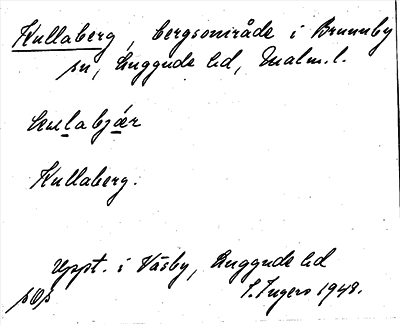 Kullaberg, bergsområde i Brunnby
sn, Luggude hd, Malm. l.
kulabjær
Kullaberg.
Uppt. i Väsby, Luggude hd
I. Ingers 1948.